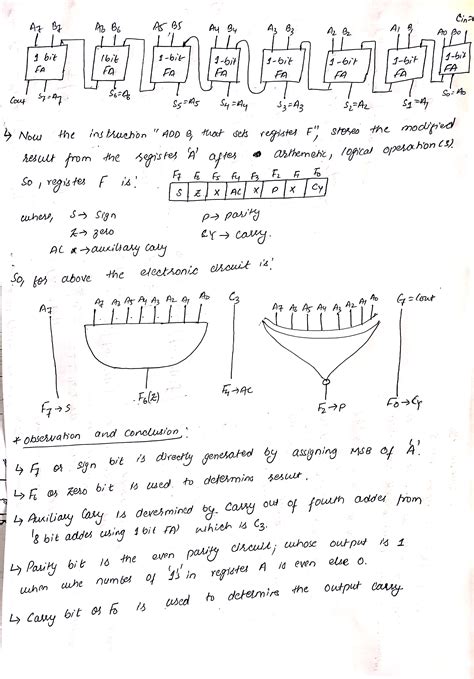 A7 B7 A6 B6 A5 B5 A4 B4 A3 B3 A2 B2 A1 B A0 B0 Cin=0
1-bit FA 1bit FA 1-bit FA 1-bit FA 1-bit FA 1-bit FA 1-bit FA 1-bit FA
Cout S7=A7 S6=A6 S5=A5 S4=A4 S3=A3 S2=A2 S1=A1 S0=A0
↳ Now the instruction "ADD B, that sets register F", stores the modified
result from the register 'A' after arthemetic, logical operation(s).
So, register F is:
F7 F6 F5 F4 F3 F2 F1 F0
S Z X AC X P X CY
where, S → Sign P → parity
Z → zero CY → carry.
AC → auxiliary cary
So, for above the electronic circuit is:
A7 A7 A6 A5 A4 A3 A2 A1 A0 C3 A7 A6 A5 A4 A3 A2 A1 A0 Cy=Cout
F7 → S F6(Z) F4 → AC F2 → P F0 → Cy
* Observation and Conclusion:
↳ F7 or sign bit is directly generated by assigning MSB of 'A'.
↳ F6 or zero bit is used to determine result.
↳ Auxiliary Cary is devermined by Carry out of fourth adder from
'8 bit adder using 1 bit FA' which is C3.
↳ Parity bit is the even parity circuit; whose output is 1
when the number of '1s' in register A is even else 0.
↳ Carry bit or F0 is used to determine the output carry